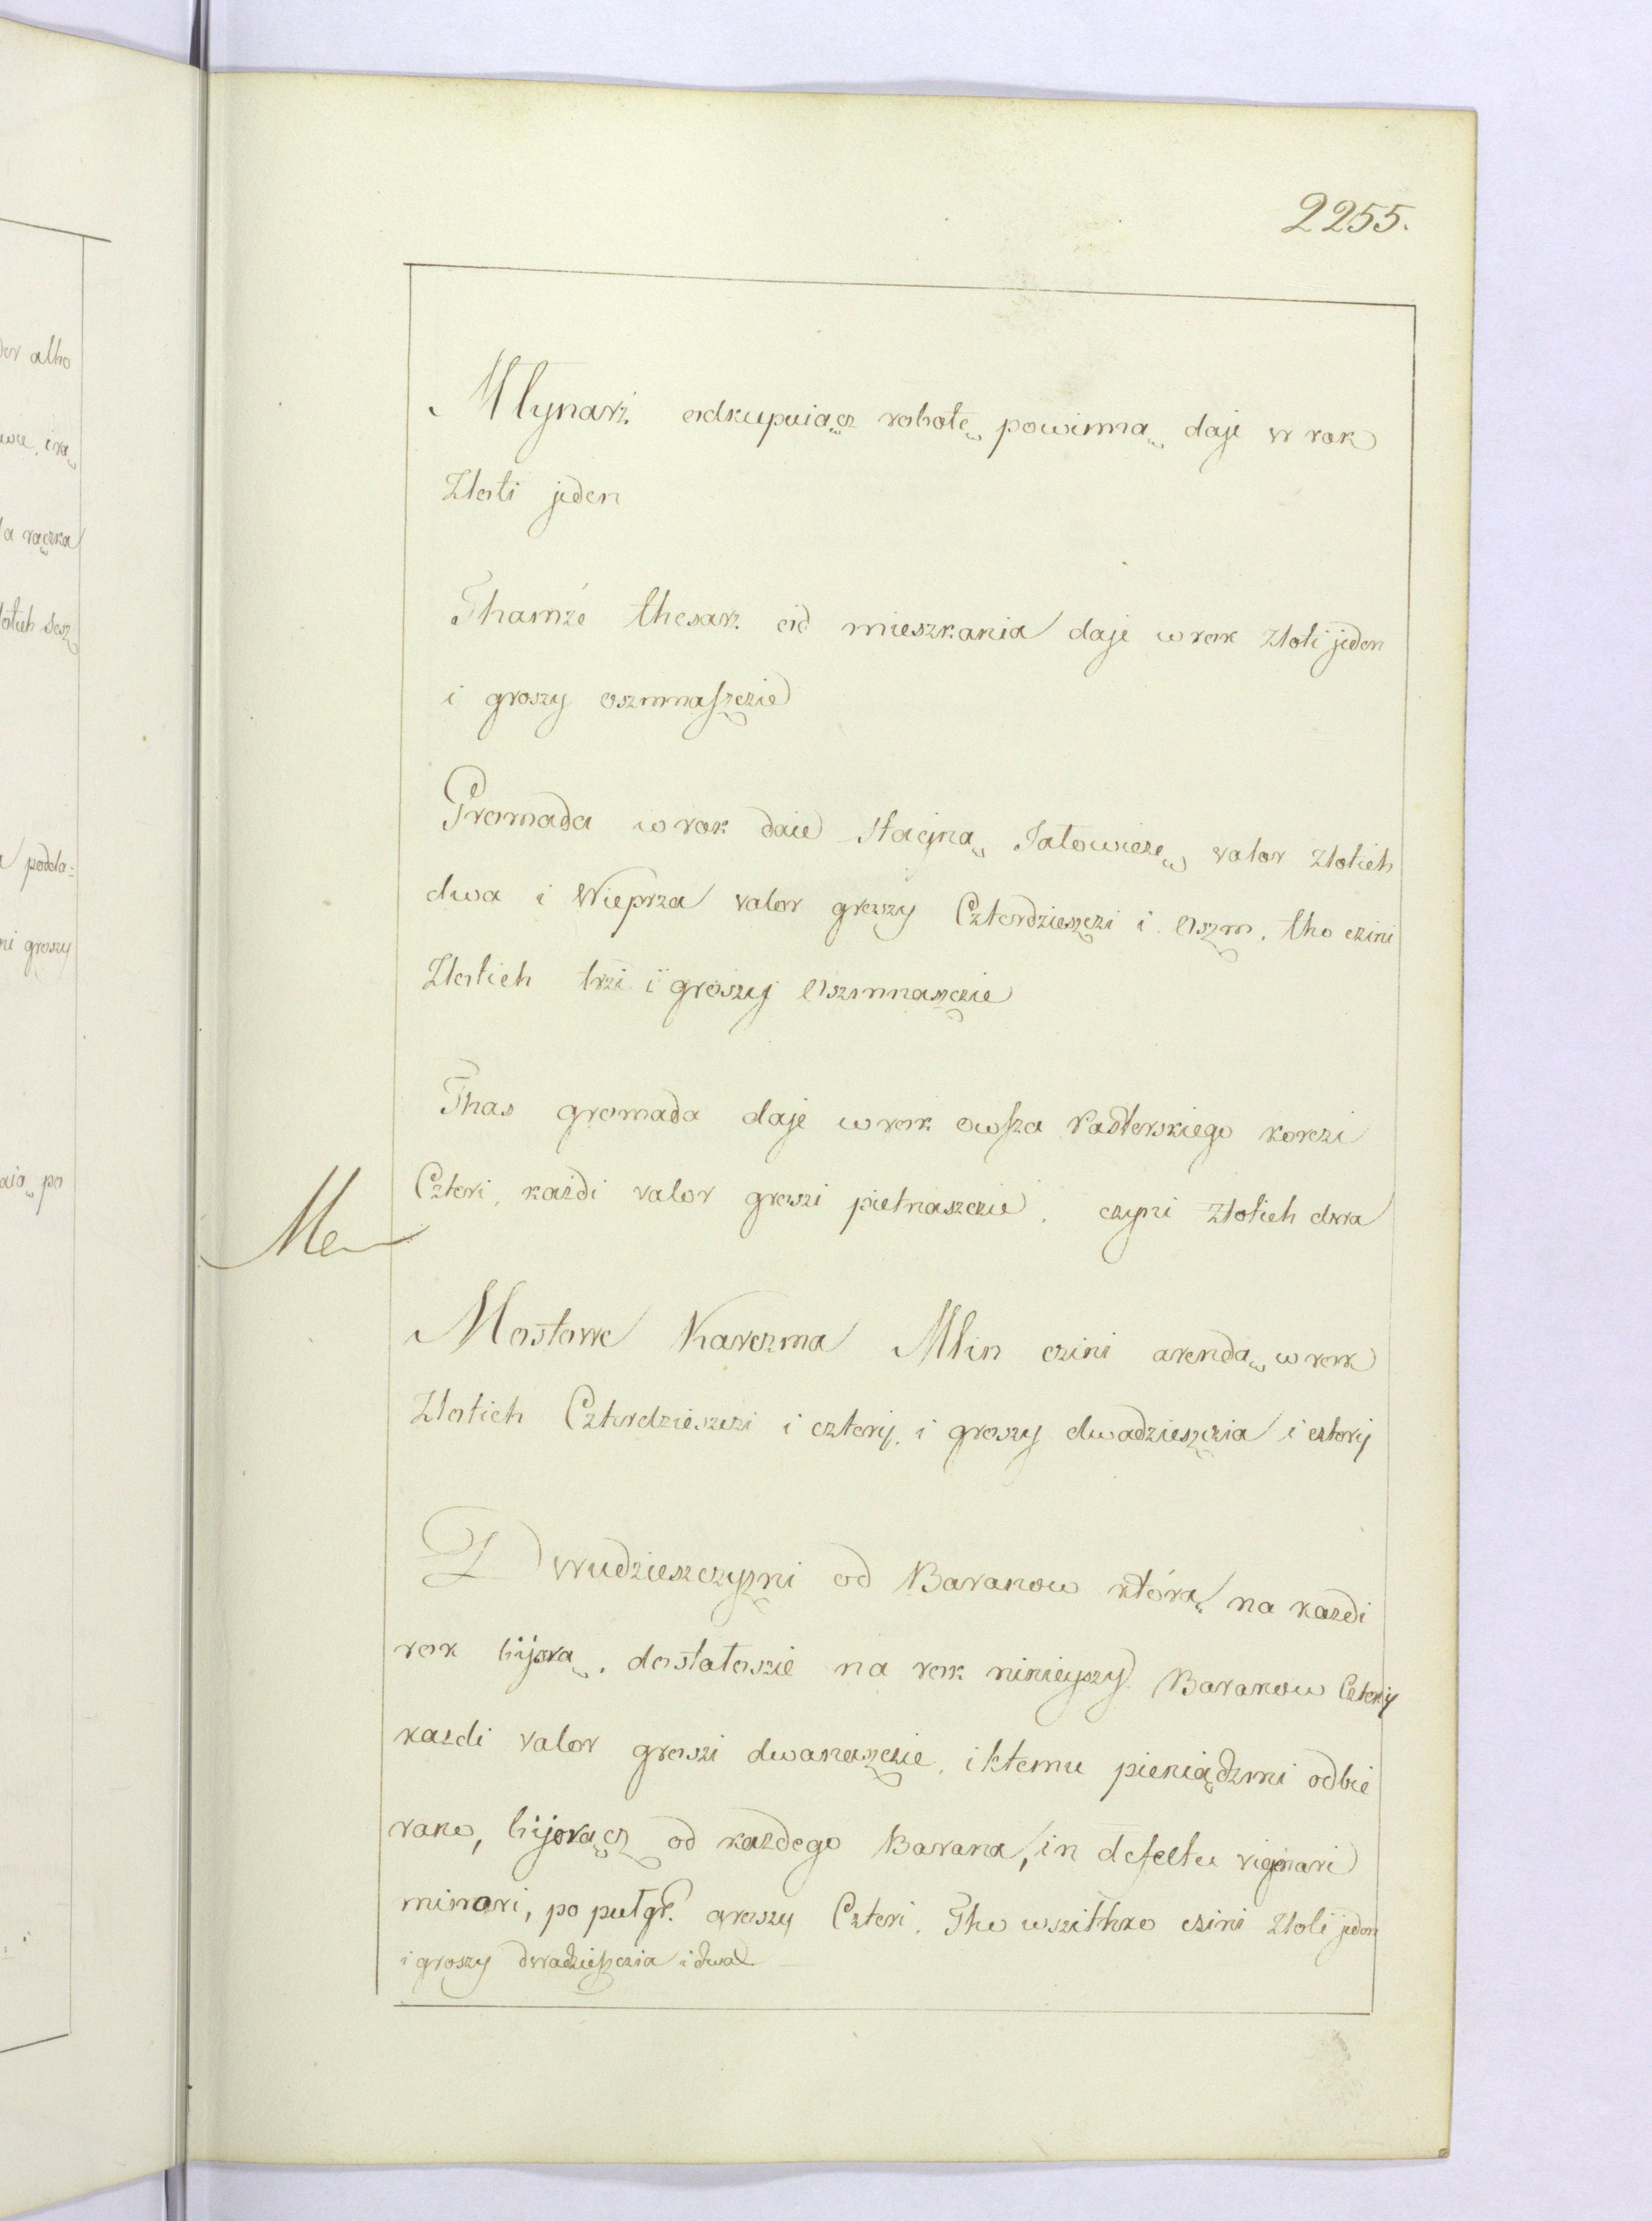 2255.
Młynarz odkupuiącz robotę powinną daje w rok
Zloti jeden
Thamże thesarz od mieszkania daje w rok Złoti jeden
i groszy oszmnaszczie
Gromada w rok daie stacyną Jałowiczę valor Złotich
dwa i Wieprza valor groszy Czterdzieszczi i Oszm. tho czini
Zlotich trzi i groszy Oszmnaszczie
Thas gromada daje w rok owsza Pasterskiego korczi
Czteri, każdi valor groszi pietnaszczie. czyni Złotich dwa
Mostowe Karczma Młin czini arendą w rok
Zlotich Czterdzieszczi i cztery. i groszy dwadzieszczia i cztery
Z Dwudzieszczyzni od Baranow którą na kazdi
rok biorą, dostałoszie na rok ninieyszy Baranow Cztery
kazdi valor groszi dwanaszczie, i ktemu pieniądzmi odbie
rano, biorącz od kazdego Barana, in defectu
minori, po pułgr. groszy Czteri. Tho wszithko czini Złoti jeden
i groszy dwadzieszczia i dwa
albo
rączka
podda:
ni groszy
po